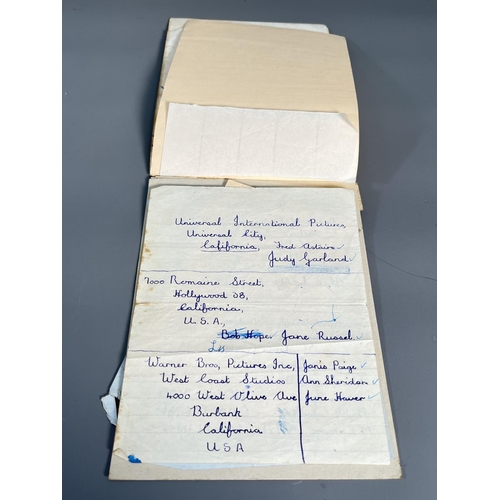 Universal International Pictures,
Universal City,
California, Fred Astaire
Judy Garland
7000 Romaine Street,
Hollywood 38,
California,
U.S.A,
Bob Hope. Jane Russel.
Warner Bros, Pictures Inc, Janis Paige
West Coast Studios Ann Sheridan
4000 West Olive Ave June Haver
Burbank
California
USA